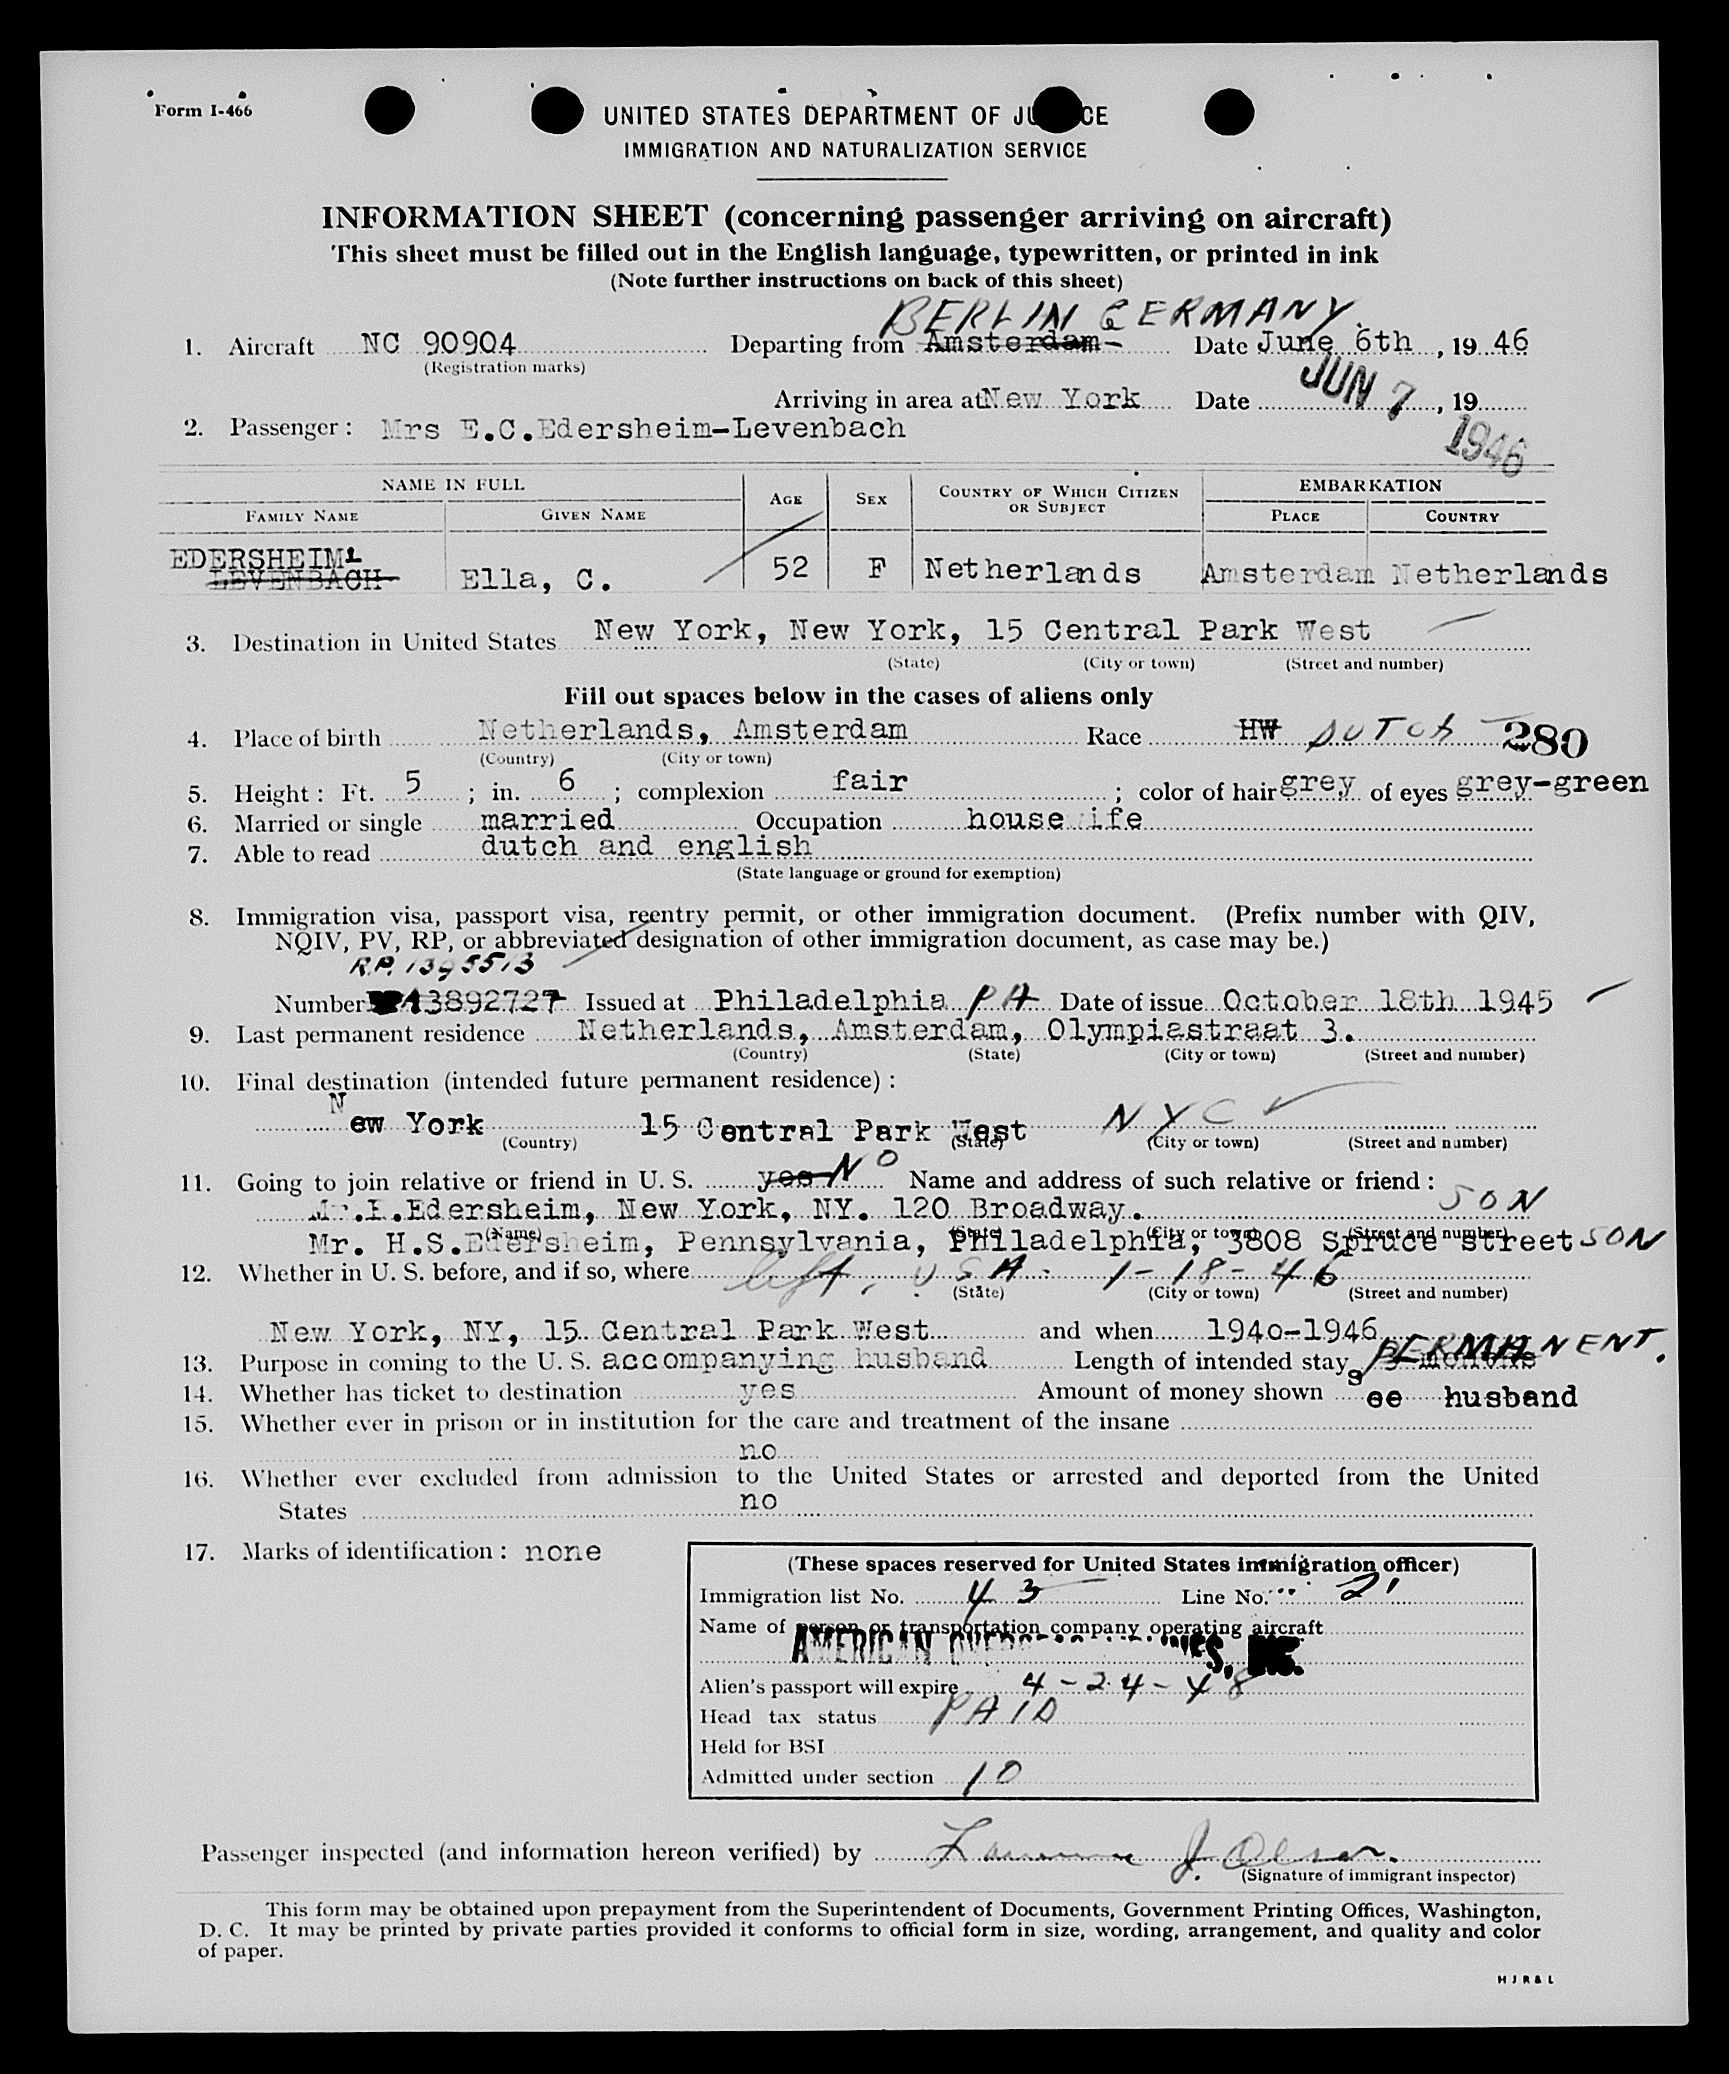 Form I-466
UNITED STATES DEPARTMENT OF JU CE
IMMIGRATION AND NATURALIZATION SERVICE
INFORMATION SHEET (concerning passenger arriving on aircraft)
This sheet must be filled out in the English language, typewritten, or printed in ink
(Note further instructions on back of this sheet)
BERLIN GERMANY.
1. Aircraft NC 90904 Departing from Amsterdam- Date June 6th, 19 46
(Registration marks)
Arriving in area at New York Date JUN 7, 19
1946
2. Passenger: Mrs E.C.Edersheim-Levenbach
NAME IN FULL AGE SEX COUNTRY OF WHICH CITIZEN OR SUBJECT EMBARKATION
FAMILY NAME GIVEN NAME PLACE COUNTRY
EDERSHEIM-
LEVENBACH Ella, C. 52 F Netherlands Amsterdam Netherlands
3. Destination in United States New York, New York, 15 Central Park West
(State) (City or town) (Street and number)
Fill out spaces below in the cases of aliens only
4. Place of birth Netherlands, Amsterdam Race HW DUTCH 280
(Country) (City or town)
5. Height: Ft. 5; in. 6; complexion fair; color of hair grey of eyes grey-green
6. Married or single married Occupation housewife
7. Able to read dutch and english
(State language or ground for exemption)
8. Immigration visa, passport visa, reentry permit, or other immigration document. (Prefix number with QIV,
NQIV, PV, RP, or abbreviated designation of other immigration document, as case may be.)
R.P. 1395513
Number 13892727 Issued at Philadelphia PA Date of issue October 18th 1945
9. Last permanent residence Netherlands, Amsterdam, Olympiastraat 3.
(Country) (State) (City or town) (Street and number)
10. Final destination (intended future permanent residence):
New York 15 Central Park West NYC
(Country) (State) (City or town) (Street and number)
11. Going to join relative or friend in U. S. yes NO Name and address of such relative or friend:
Mr.I.Edersheim, New York, NY. 120 Broadway. SON
(Name) (State) (City or town) (Street and number)
Mr. H.S.Edersheim, Pennsylvania, Philadelphia, 3808 Spruce street SON
12. Whether in U. S. before, and if so, where left. USA - 1-18-46
(State) (City or town) (Street and number)
New York, NY, 15 Central Park West and when 1940-1946
13. Purpose in coming to the U. S. accompanying husband Length of intended stay PERMANENT.
14. Whether has ticket to destination yes Amount of money shown see husband
15. Whether ever in prison or in institution for the care and treatment of the insane
no
16. Whether ever excluded from admission to the United States or arrested and deported from the United
States no
17. Marks of identification: none
(These spaces reserved for United States immigration officer)
Immigration list No. 43 Line No. 2
Name of person or transportation company operating aircraft
AMERICAN
Alien's passport will expire 4-24-48
Head tax status PAID
Held for BSI
Admitted under section 10
Passenger inspected (and information hereon verified) by Lawrence J. Olson.
(Signature of immigrant inspector)
This form may be obtained upon prepayment from the Superintendent of Documents, Government Printing Offices, Washington,
D. C. It may be printed by private parties provided it conforms to official form in size, wording, arrangement, and quality and color
of paper.
H J R & L